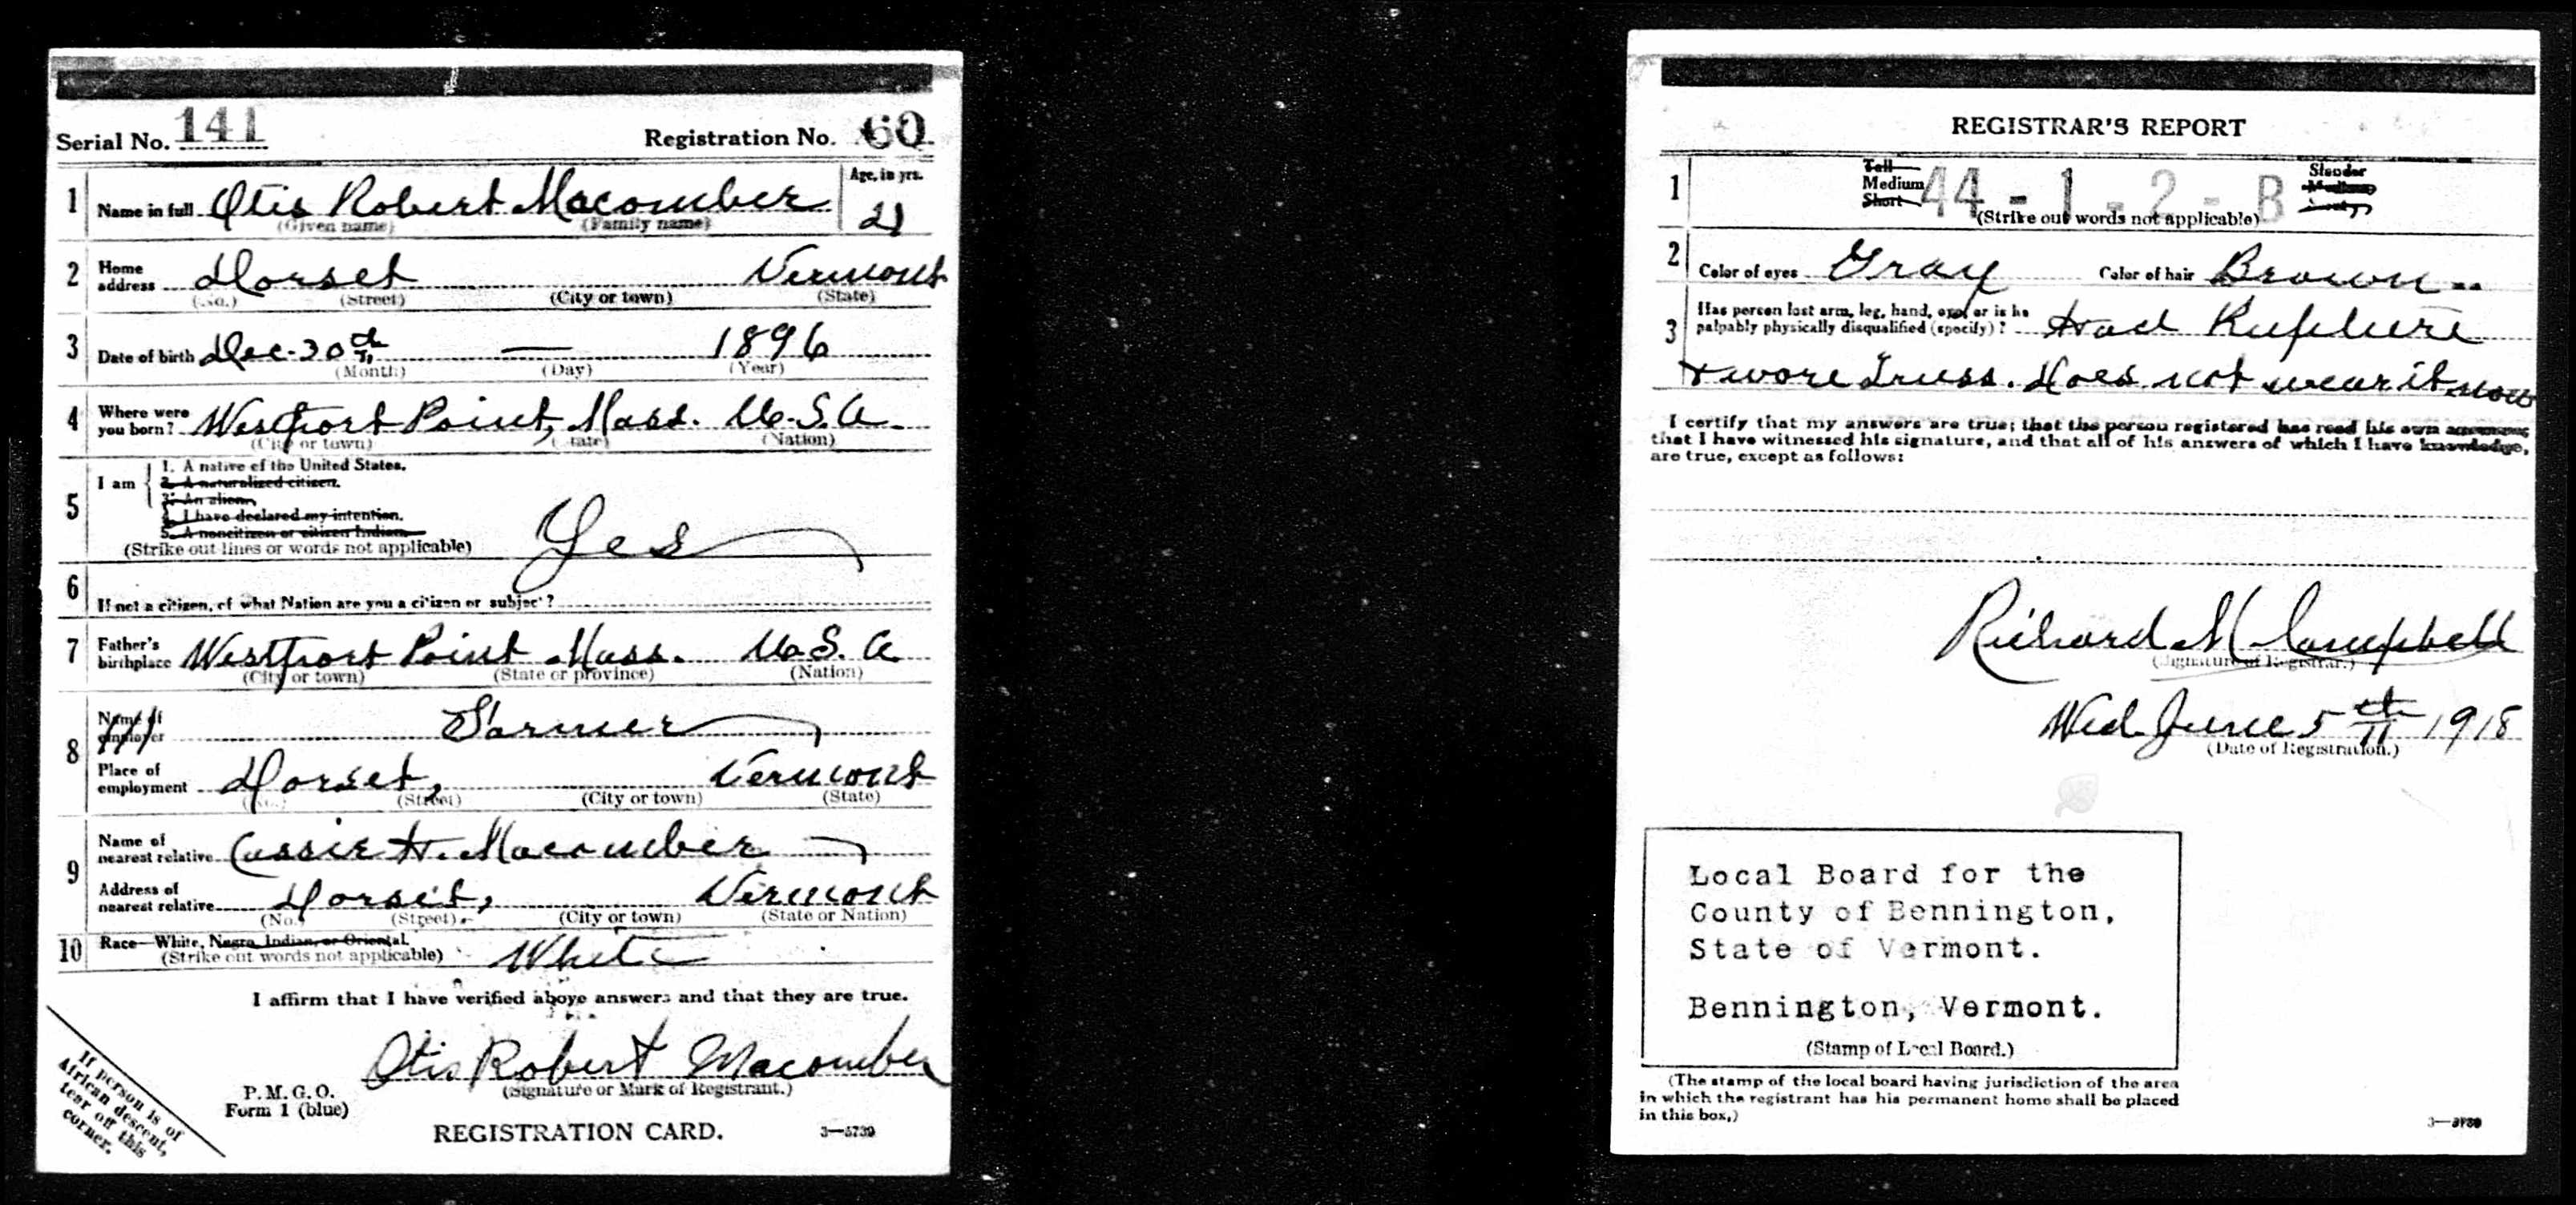 Serial No. 141 Registration No. 60
1 Name in full Otis Robert Macomber Age, in yrs. 21
(Given name) (Family name)
2 Home address Dorset Vermont
(No.) (Street) (City or town) (State)
3 Date of birth Dec. 30th — 1896
(Month) (Day) (Year)
4 Where were you born? Westport Point, Mass. U.S.A.
(City or town) (State) (Nation)
5 I am
1. A native of the United States.
2. A naturalized citizen.
3. An alien.
4. I have declared my intention.
5. A noncitizen or citizen Indian.
(Strike out lines or words not applicable) Yes
6 If not a citizen, of what Nation are you a citizen or subject?
7 Father's birthplace Westport Point Mass. U.S.A
(City or town) (State or province) (Nation)
8 Name of employer Farmer
Place of employment Dorset, Vermont
(No.) (Street) (City or town) (State)
9 Name of nearest relative Cassie H. Macomber
Address of nearest relative Dorset, Vermont
(No.) (Street) (City or town) (State or Nation)
10 Race—White, Negro, Indian, or Oriental.
(Strike out words not applicable) White
I affirm that I have verified above answers and that they are true.
Otis Robert Macomber
(Signature or Mark of Registrant.)
P.M.G.O.
Form 1 (blue)
REGISTRATION CARD. 3—5739
If person is of
African descent,
tear off this
corner.
REGISTRAR'S REPORT
1 Tall Medium Short 44-1-2-B Slender
(Strike out words not applicable)
2 Color of eyes Gray Color of hair Brown
3 Has person lost arm, leg, hand, eye, or is he
palpably physically disqualified (specify)? Had Rupture
+ wore Truss. Does not wear it now
I certify that my answers are true; that the person registered has read his own answers;
that I have witnessed his signature, and that all of his answers of which I have knowledge,
are true, except as follows:
Richard M Campbell
(Signature of Registrar.)
Wed. June 5th 1918
(Date of Registration.)
Local Board for the
County of Bennington,
State of Vermont.
Bennington, Vermont.
(Stamp of Local Board.)
(The stamp of the local board having jurisdiction of the area
in which the registrant has his permanent home shall be placed
in this box.)